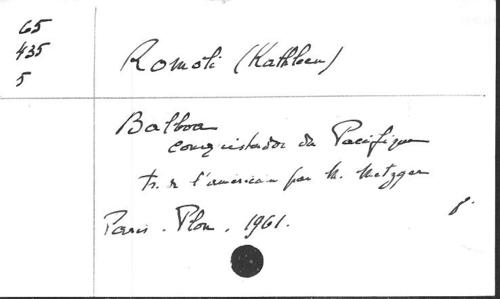 65
435
5
Romoli (Kathleen)
Balboa
conquistador du Pacifique
tr. de l'américain par M. Metzger
Paris. Plon. 1961.
8°